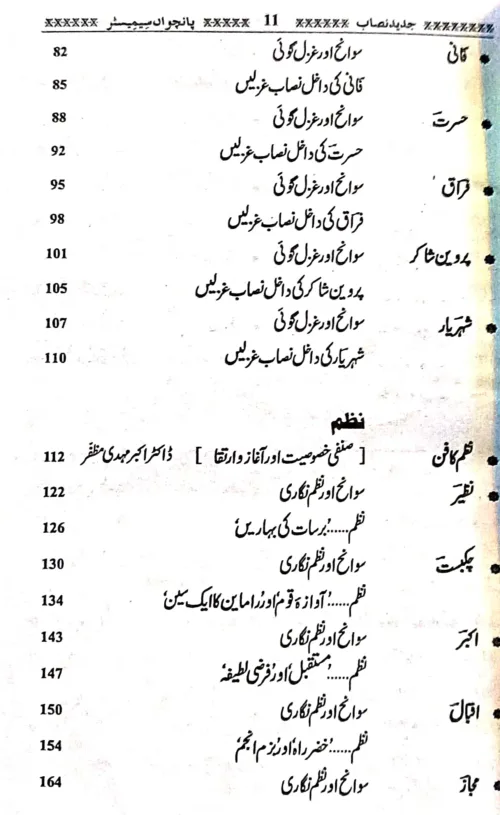 جدید نصاب 11 پانچواں سیمیسٹر
فانی سوانح اور غزل گوئی 82
فانی کی داخل نصاب غزلیں 85
حسرت سوانح اور غزل گوئی 88
حسرت کی داخل نصاب غزلیں 92
فراق سوانح اور غزل گوئی 95
فراق کی داخل نصاب غزلیں 98
پروین شاکر سوانح اور غزل گوئی 101
پروین شاکر کی داخل نصاب غزلیں 105
شہریار سوانح اور غزل گوئی 107
شہریار کی داخل نصاب غزلیں 110
نظم
نظم کا فن [ صنفی خصوصیت اور آغاز و ارتقا ] ڈاکٹر اکبر مہدی مظفر 112
نظیر سوانح اور نظم نگاری 122
نظم.....'برسات کی بہاریں' 126
چکبست سوانح اور نظم نگاری 130
نظم.....'آوازۂ قوم' اور 'راماین کا ایک سین' 134
اکبر سوانح اور نظم نگاری 143
نظم.....'مستقبل' اور 'فرضی لطیفہ' 147
اقبال سوانح اور نظم نگاری 150
نظم.....'خضر راہ' اور 'بزم انجم' 154
مجاز سوانح اور نظم نگاری 164